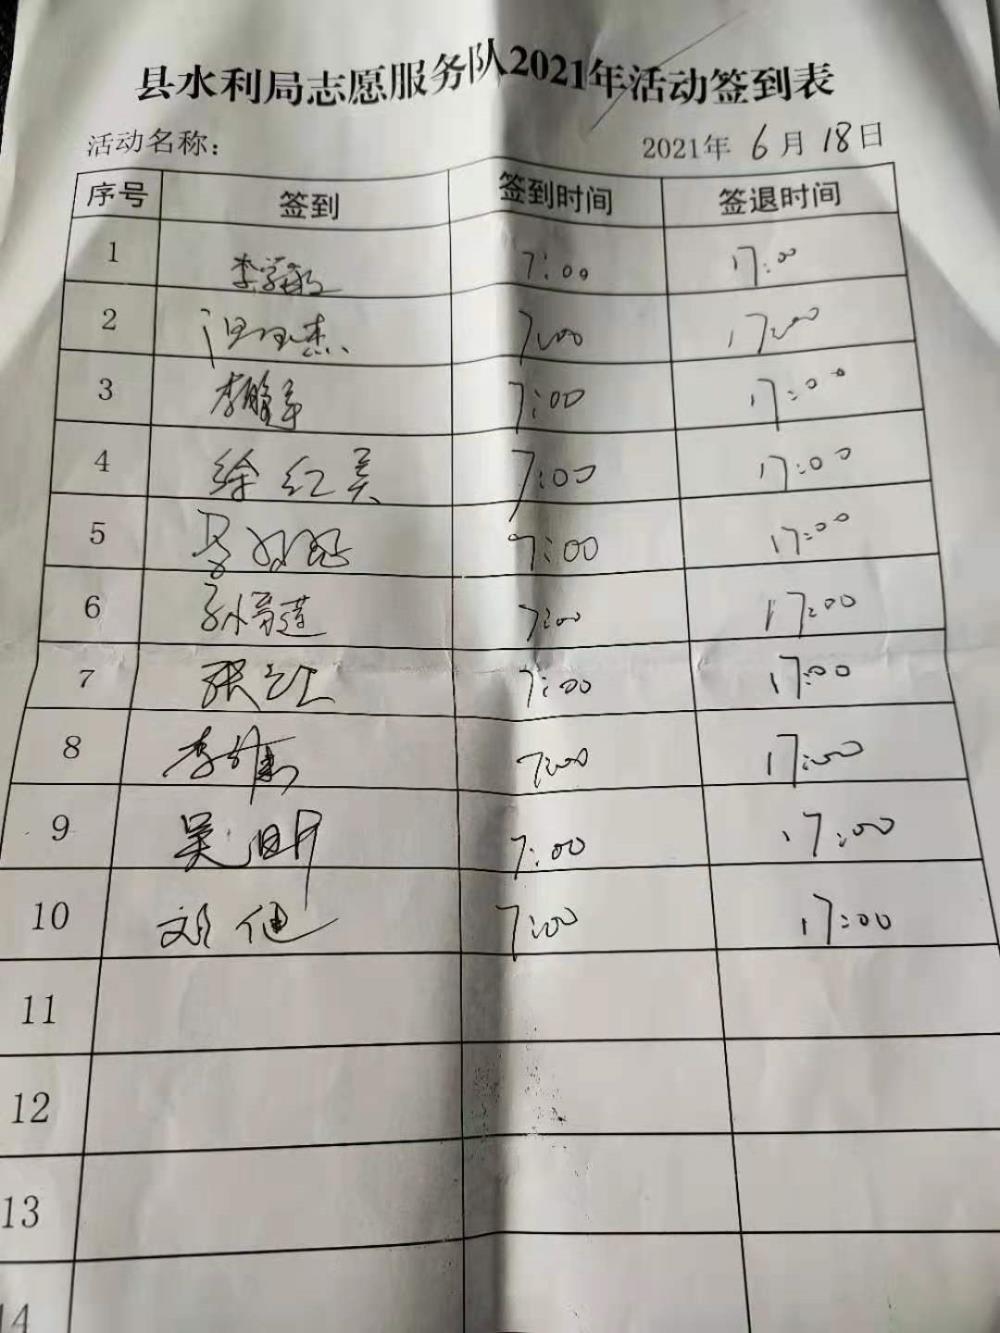 县水利局志愿服务队2021年活动签到表
活动名称： 2021年 6月 18日
序号 签到 签到时间 签退时间
1 7:00 17:00
2 7:00 17:00
3 7:00 17:00
4 徐红昊 7:00 17:00
5 7:00 17:00
6 7:00 17:00
7 7:00 17:00
8 7:00 17:00
9 吴明 7:00 17:00
10 刘健 7:00 17:00
11
12
13
14